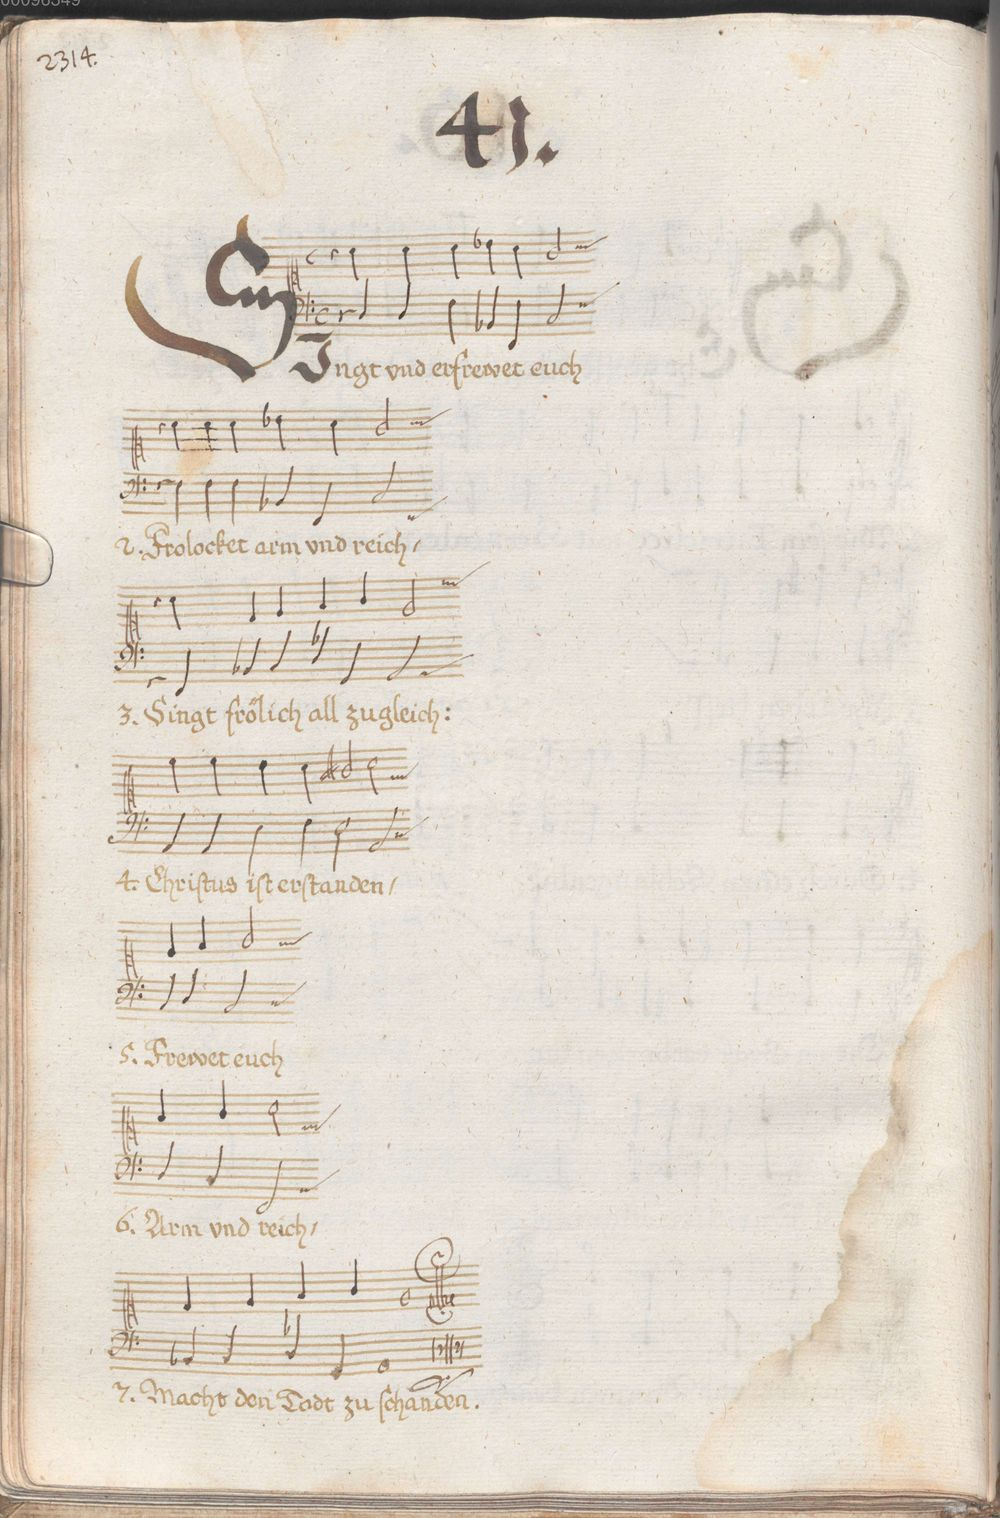 00096349
2314.
41.
SIngt vnd erfrewet euch
2. Frolocket arm vnd reich/
3. Singt frölich all zugleich:
4. Christus ist erstanden/
5. Frewet euch
6. Arm vnd reich/
7. Macht den Todt zu schanden.